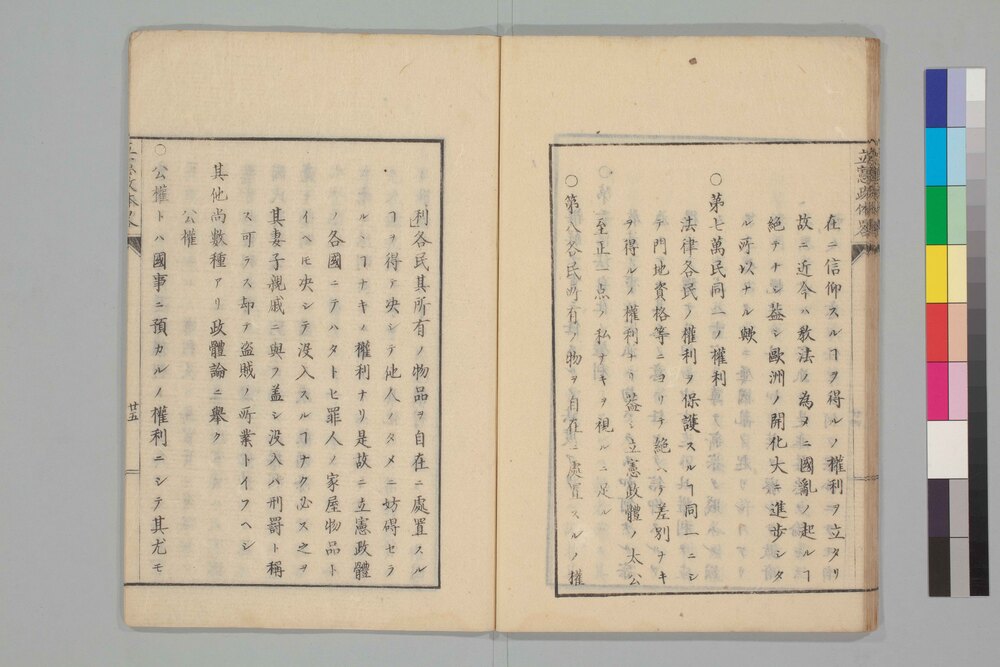 在ニ信仰スルヿヲ得ルノ權利ヲ立タリ
故ニ近今ハ敎法ノ為メニ國亂ノ起ルヿ
絶テナシ蓋シ歐洲ノ開化大ニ進歩シタ
ル所以ナル歟
○第七萬民同一ノ權利
法律各民ノ權利ヲ保護スルヿ同一ニシ
テ門地資格等ニヨリテ絶ヘテ差別ナキ
ヲ得ルノ權利ナリ蓋シ立憲政體ノ太公
至正一点ノ私ナキヲ視ルニ足ル
○第八各民所有ノ物ヲ自在ニ處置スルノ權
利各民其所有ノ物品ヲ自在ニ處置スル
ヿヲ得テ决シテ他人ノタメニ妨碍セラ
ルヽヿナキノ權利ナリ是故ニ立憲政體
ノ各國ニテハタトヒ罪人ノ家屋物品ト
イヘ𪜈决シテ没入スルヿナク必ス之ヲ
其妻子親戚ニ與フ盖シ没入ハ刑罰ト稱
ス可ラス却テ盗賊ノ所業トイフヘシ
其他尚數種アリ政體論ニ擧ク
公權
○公權トハ國事ニ預カルノ權利ニシテ其尤モ
廿五